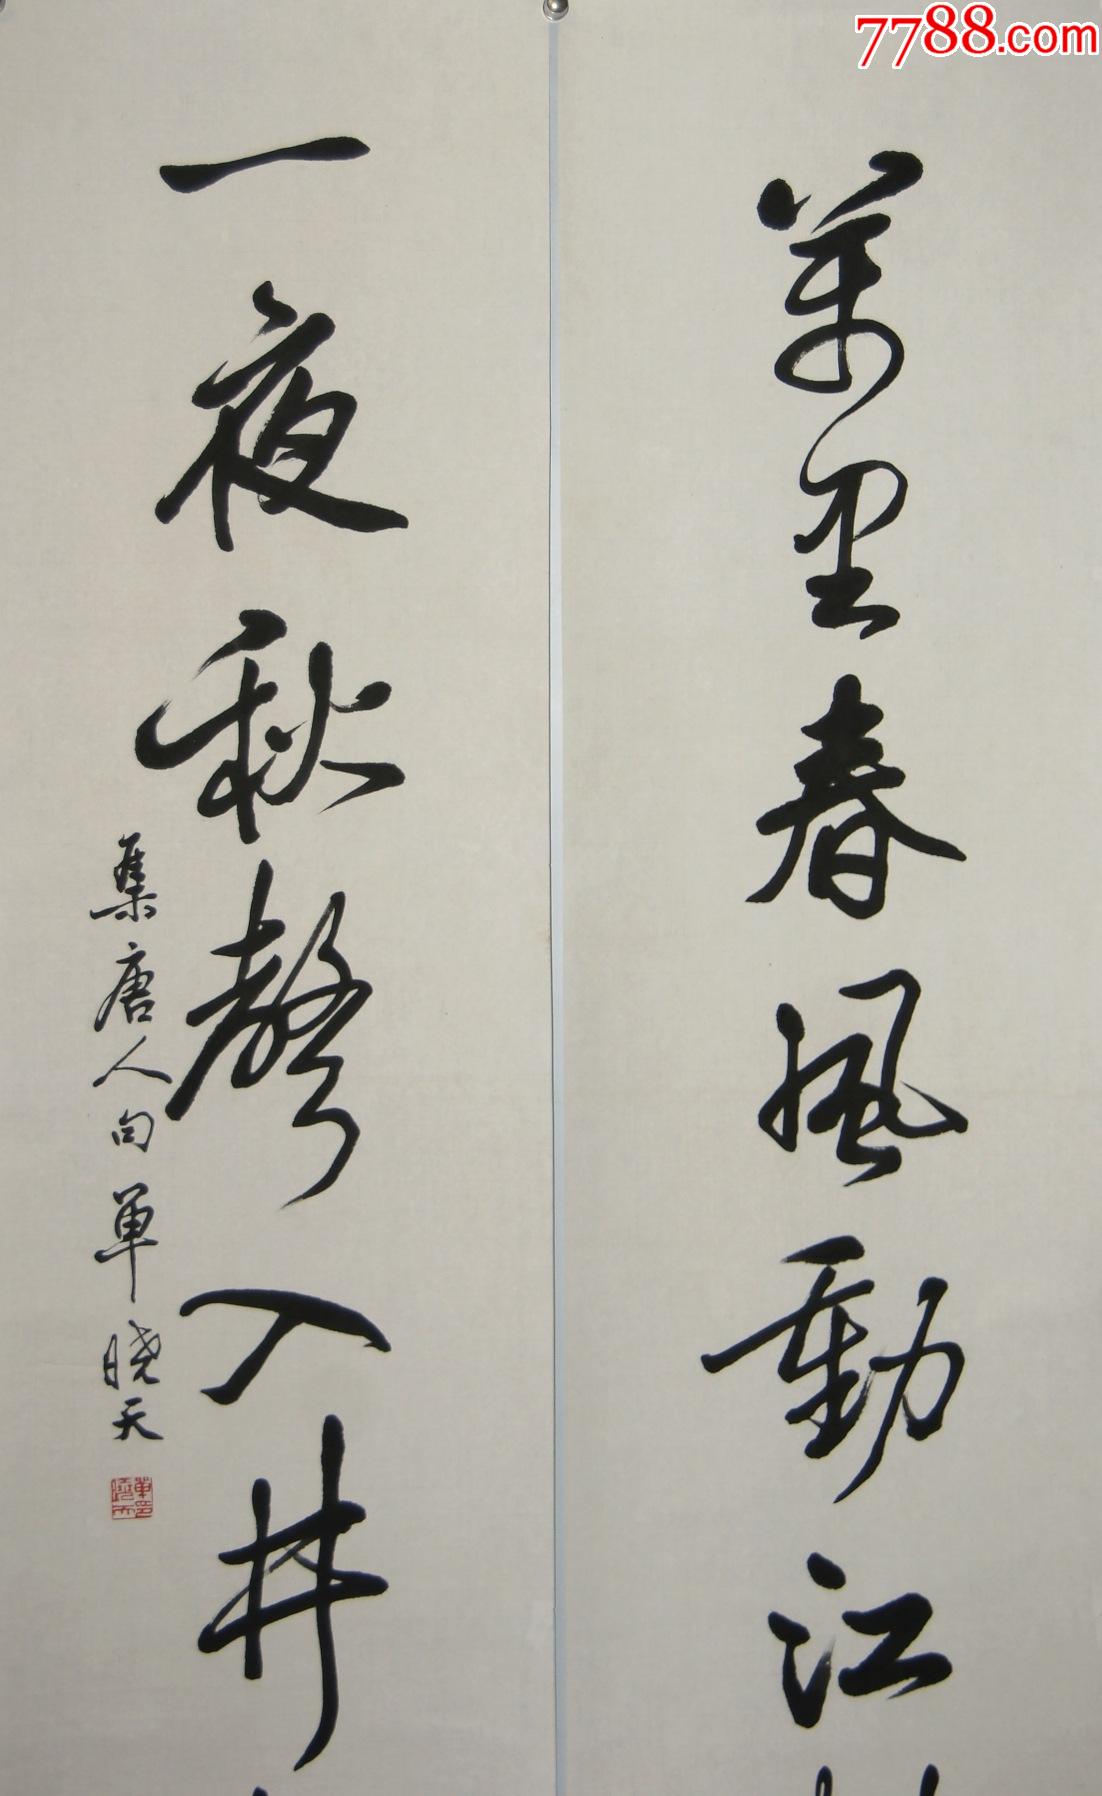 萬里春風動江
一夜秋聲入井
集唐人句單曉天
7788.com